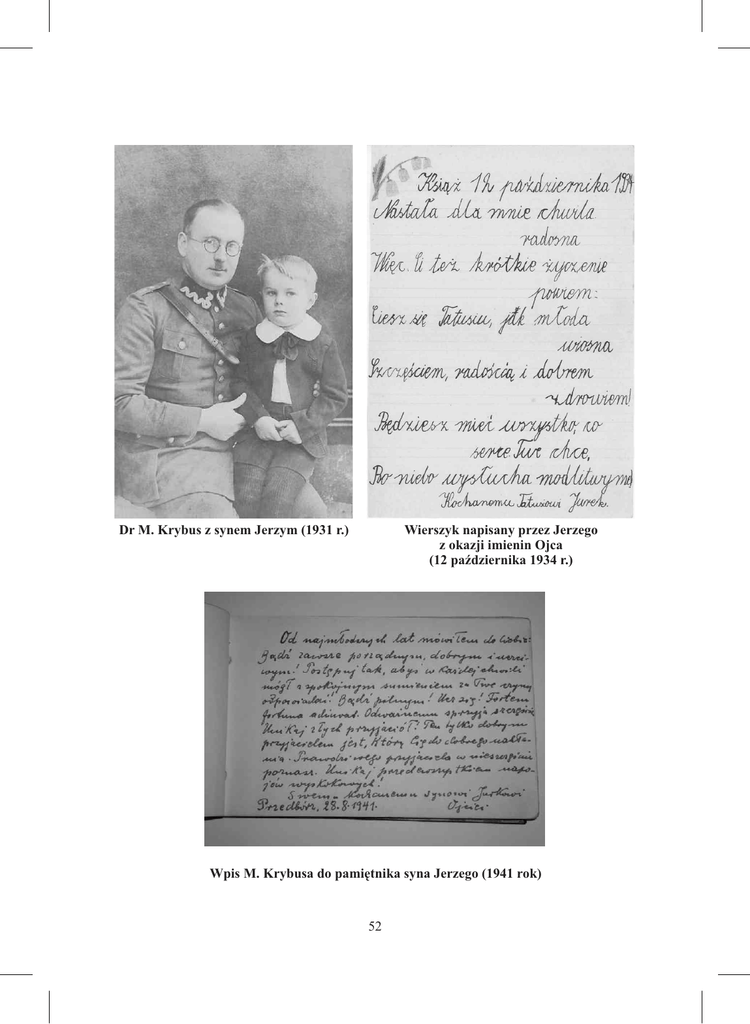 Książ 12 października 1934
Nastała dla mnie chwila
radosna
Więc Ci też krótkie życzenie
powiem:
Ciesz się Tatusiu, jak młoda
wiosna
Szczęściem, radością i dobrem
zdrowiem!
Będziesz mieć wszystko, co
serce Twe chce,
Bo niebo wysłucha modlitwy mej
Kochanemu Tatusiowi Jurek.
Dr M. Krybus z synem Jerzym (1931 r.)
Wierszyk napisany przez Jerzego
z okazji imienin Ojca
(12 października 1934 r.)
Od najmłodszych lat mówiłem do Ciebie:
Bądź zawsze porządnym, dobrym i uczci-
wym! Postępuj tak, abyś w każdej chwili
mógł z spokojnym sumieniem za Twe czyny
odpowiadać! Bądź pilnym! Ucz się! Fortem
fortuna adiuvat. Odważnemu sprzyja szczęście
Unikaj złych przyjaciół! Ten tylko dobrym
przyjacielem jest, który Cię do dobrego nakła-
nia. Prawdziwego przyjaciela w nieszczęściu
poznasz. Unikaj przedewszystkiem napo-
jów wyskokowych!
Swemu kochanemu synowi Jurkowi
Przedbórz, 28.8.1941. Ojciec
Wpis M. Krybusa do pamiętnika syna Jerzego (1941 rok)
52